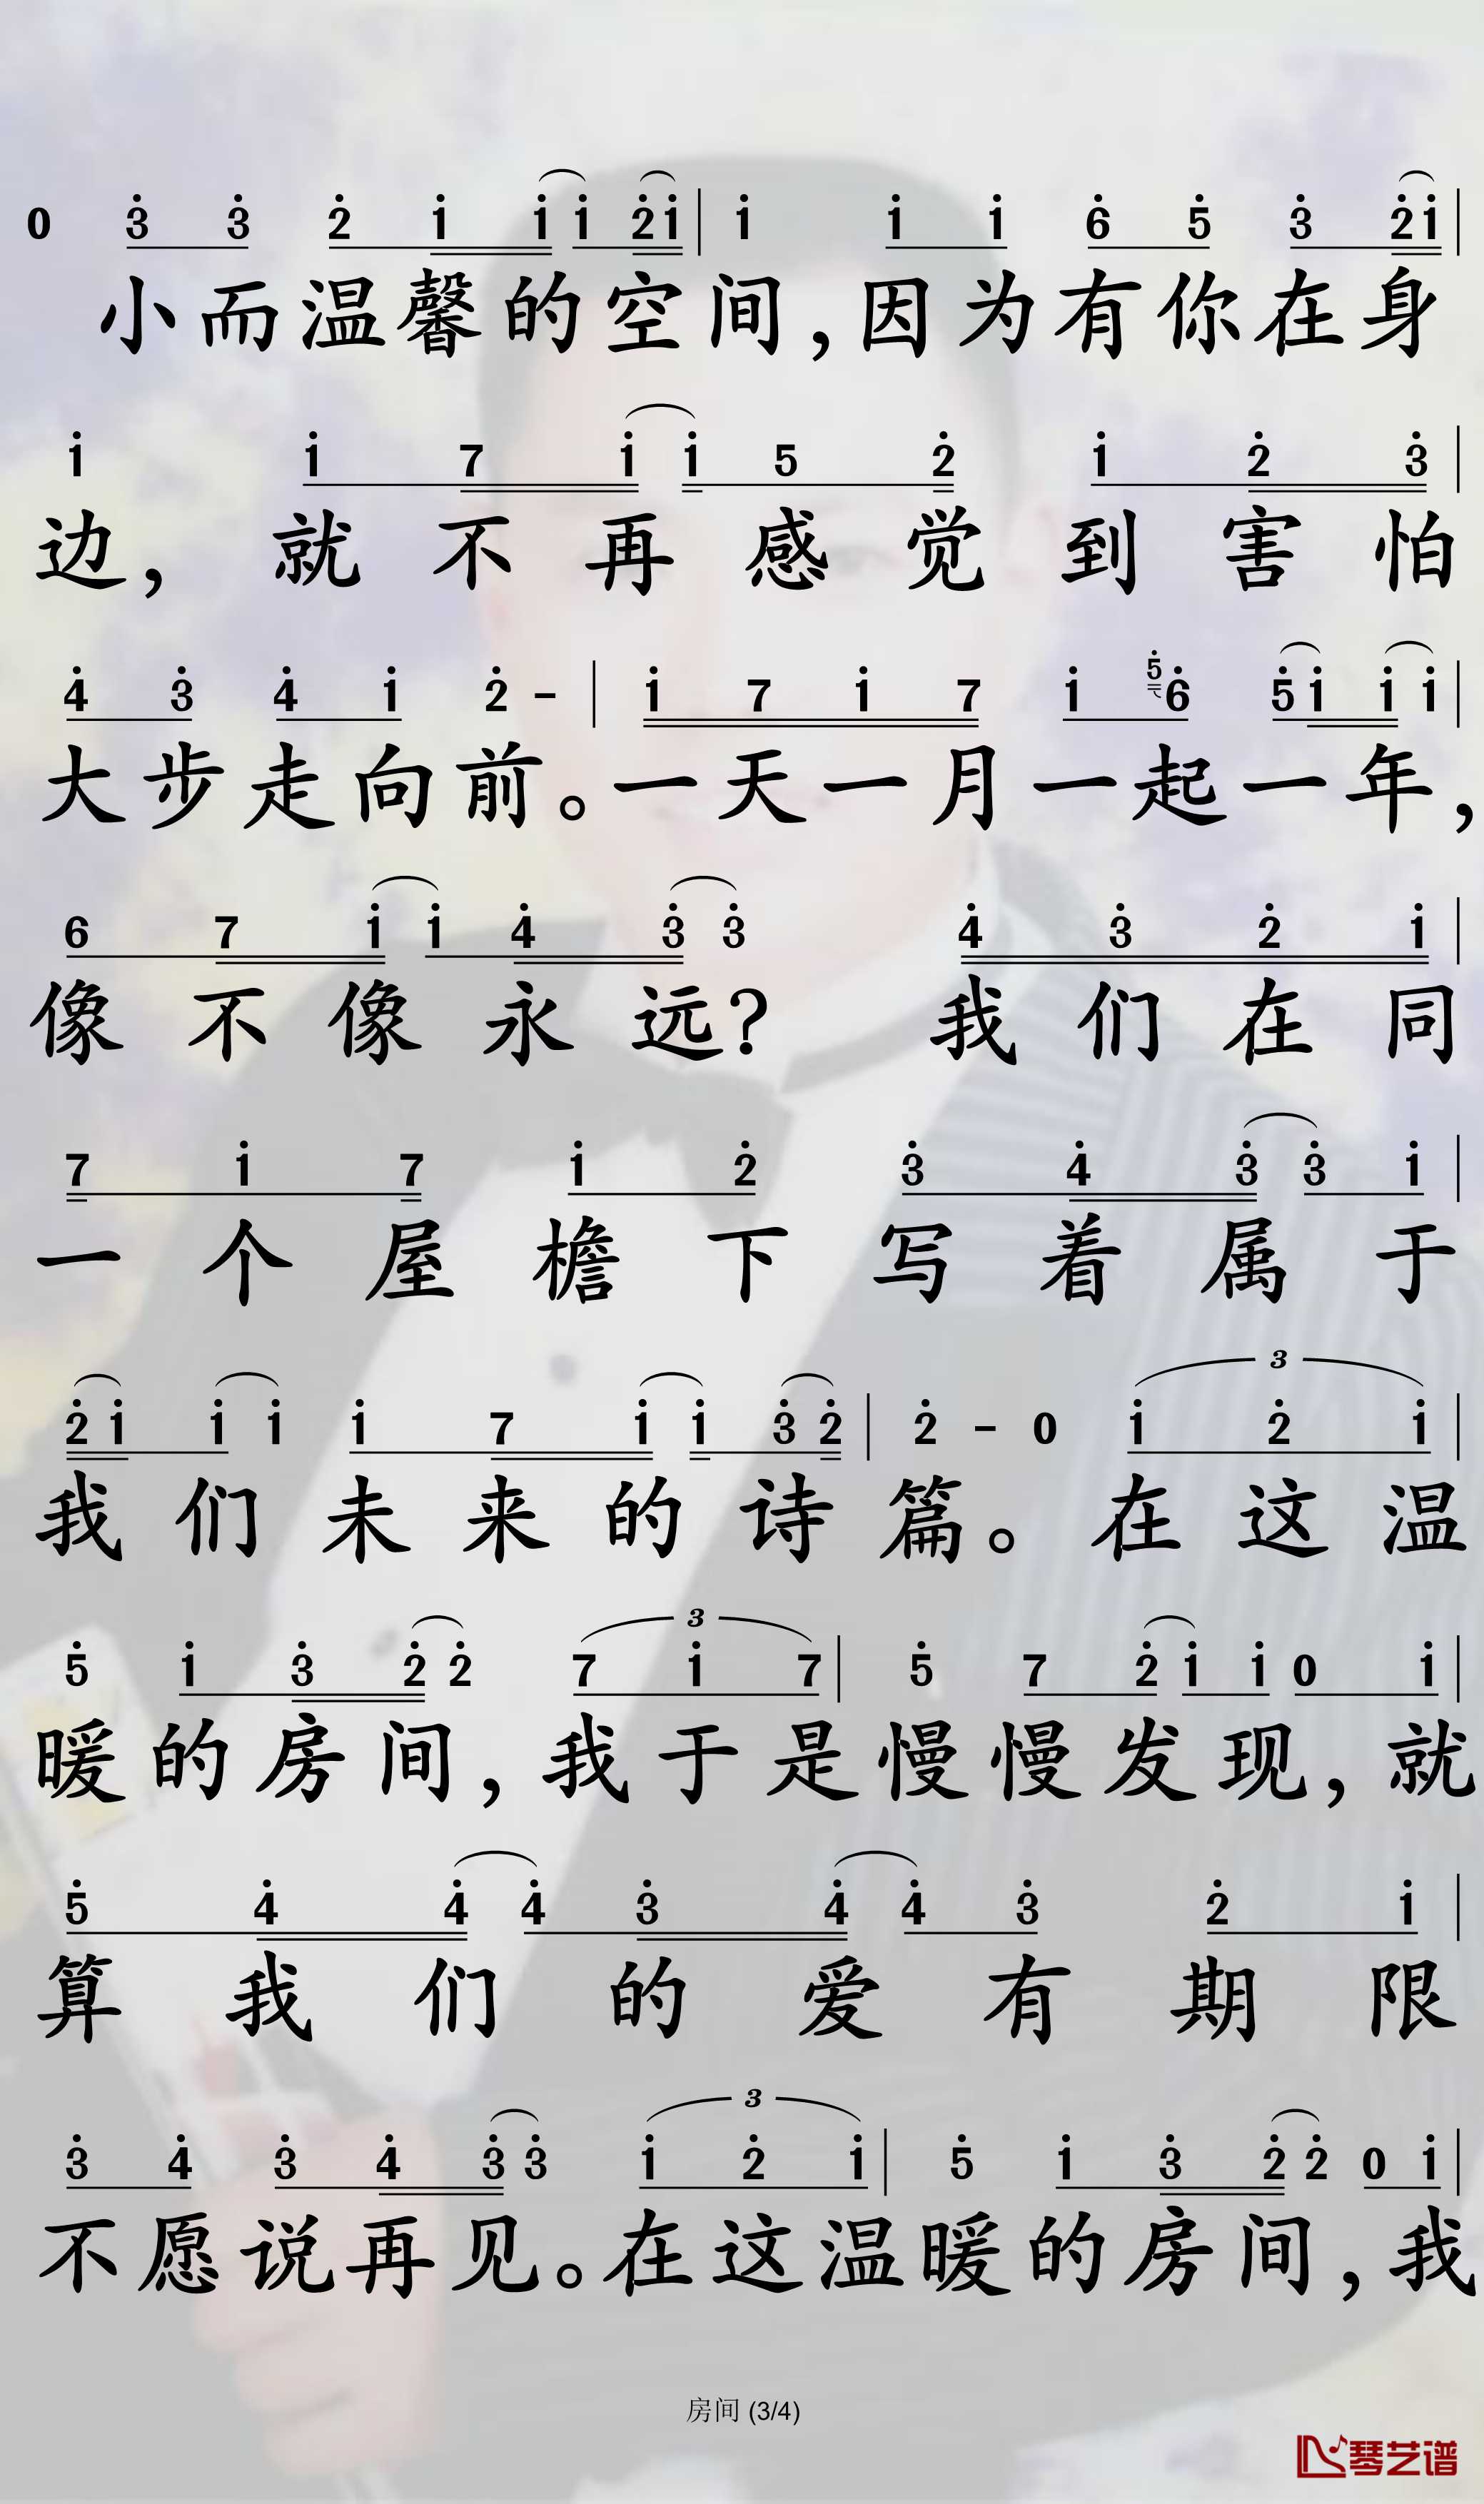 0 3 3 2 1 1 1 2 1 | 1 1 1 6 5 3 2 1 |
小而温馨的空间，因为有你在身
1 1 7 1 1 5 2 1 2 3 |
边，就不再感觉到害怕
4 3 4 1 2 - | 1 7 1 7 1 5 6 5 1 1 1 |
大步走向前。一天一月一起一年，
6 7 1 1 4 3 3 4 3 2 1 |
像不像永远？我们在同
7 1 7 1 2 3 4 3 3 1 |
一个屋檐下写着属于
3
2 1 1 1 1 7 1 1 3 2 | 2 - 0 1 2 1 |
我们未来的诗篇。在这温
3
5 1 3 2 2 7 1 7 | 5 7 2 1 1 0 1 |
暖的房间，我于是慢慢发现，就
5 4 4 4 3 4 4 3 2 1 |
算我们的爱有期限
3
3 4 3 4 3 3 1 2 1 | 5 1 3 2 2 0 1 |
不愿说再见。在这温暖的房间，我
房间 (3/4)
琴艺谱